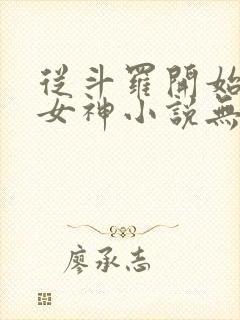 從斗羅開始
女神小說無
廖承志